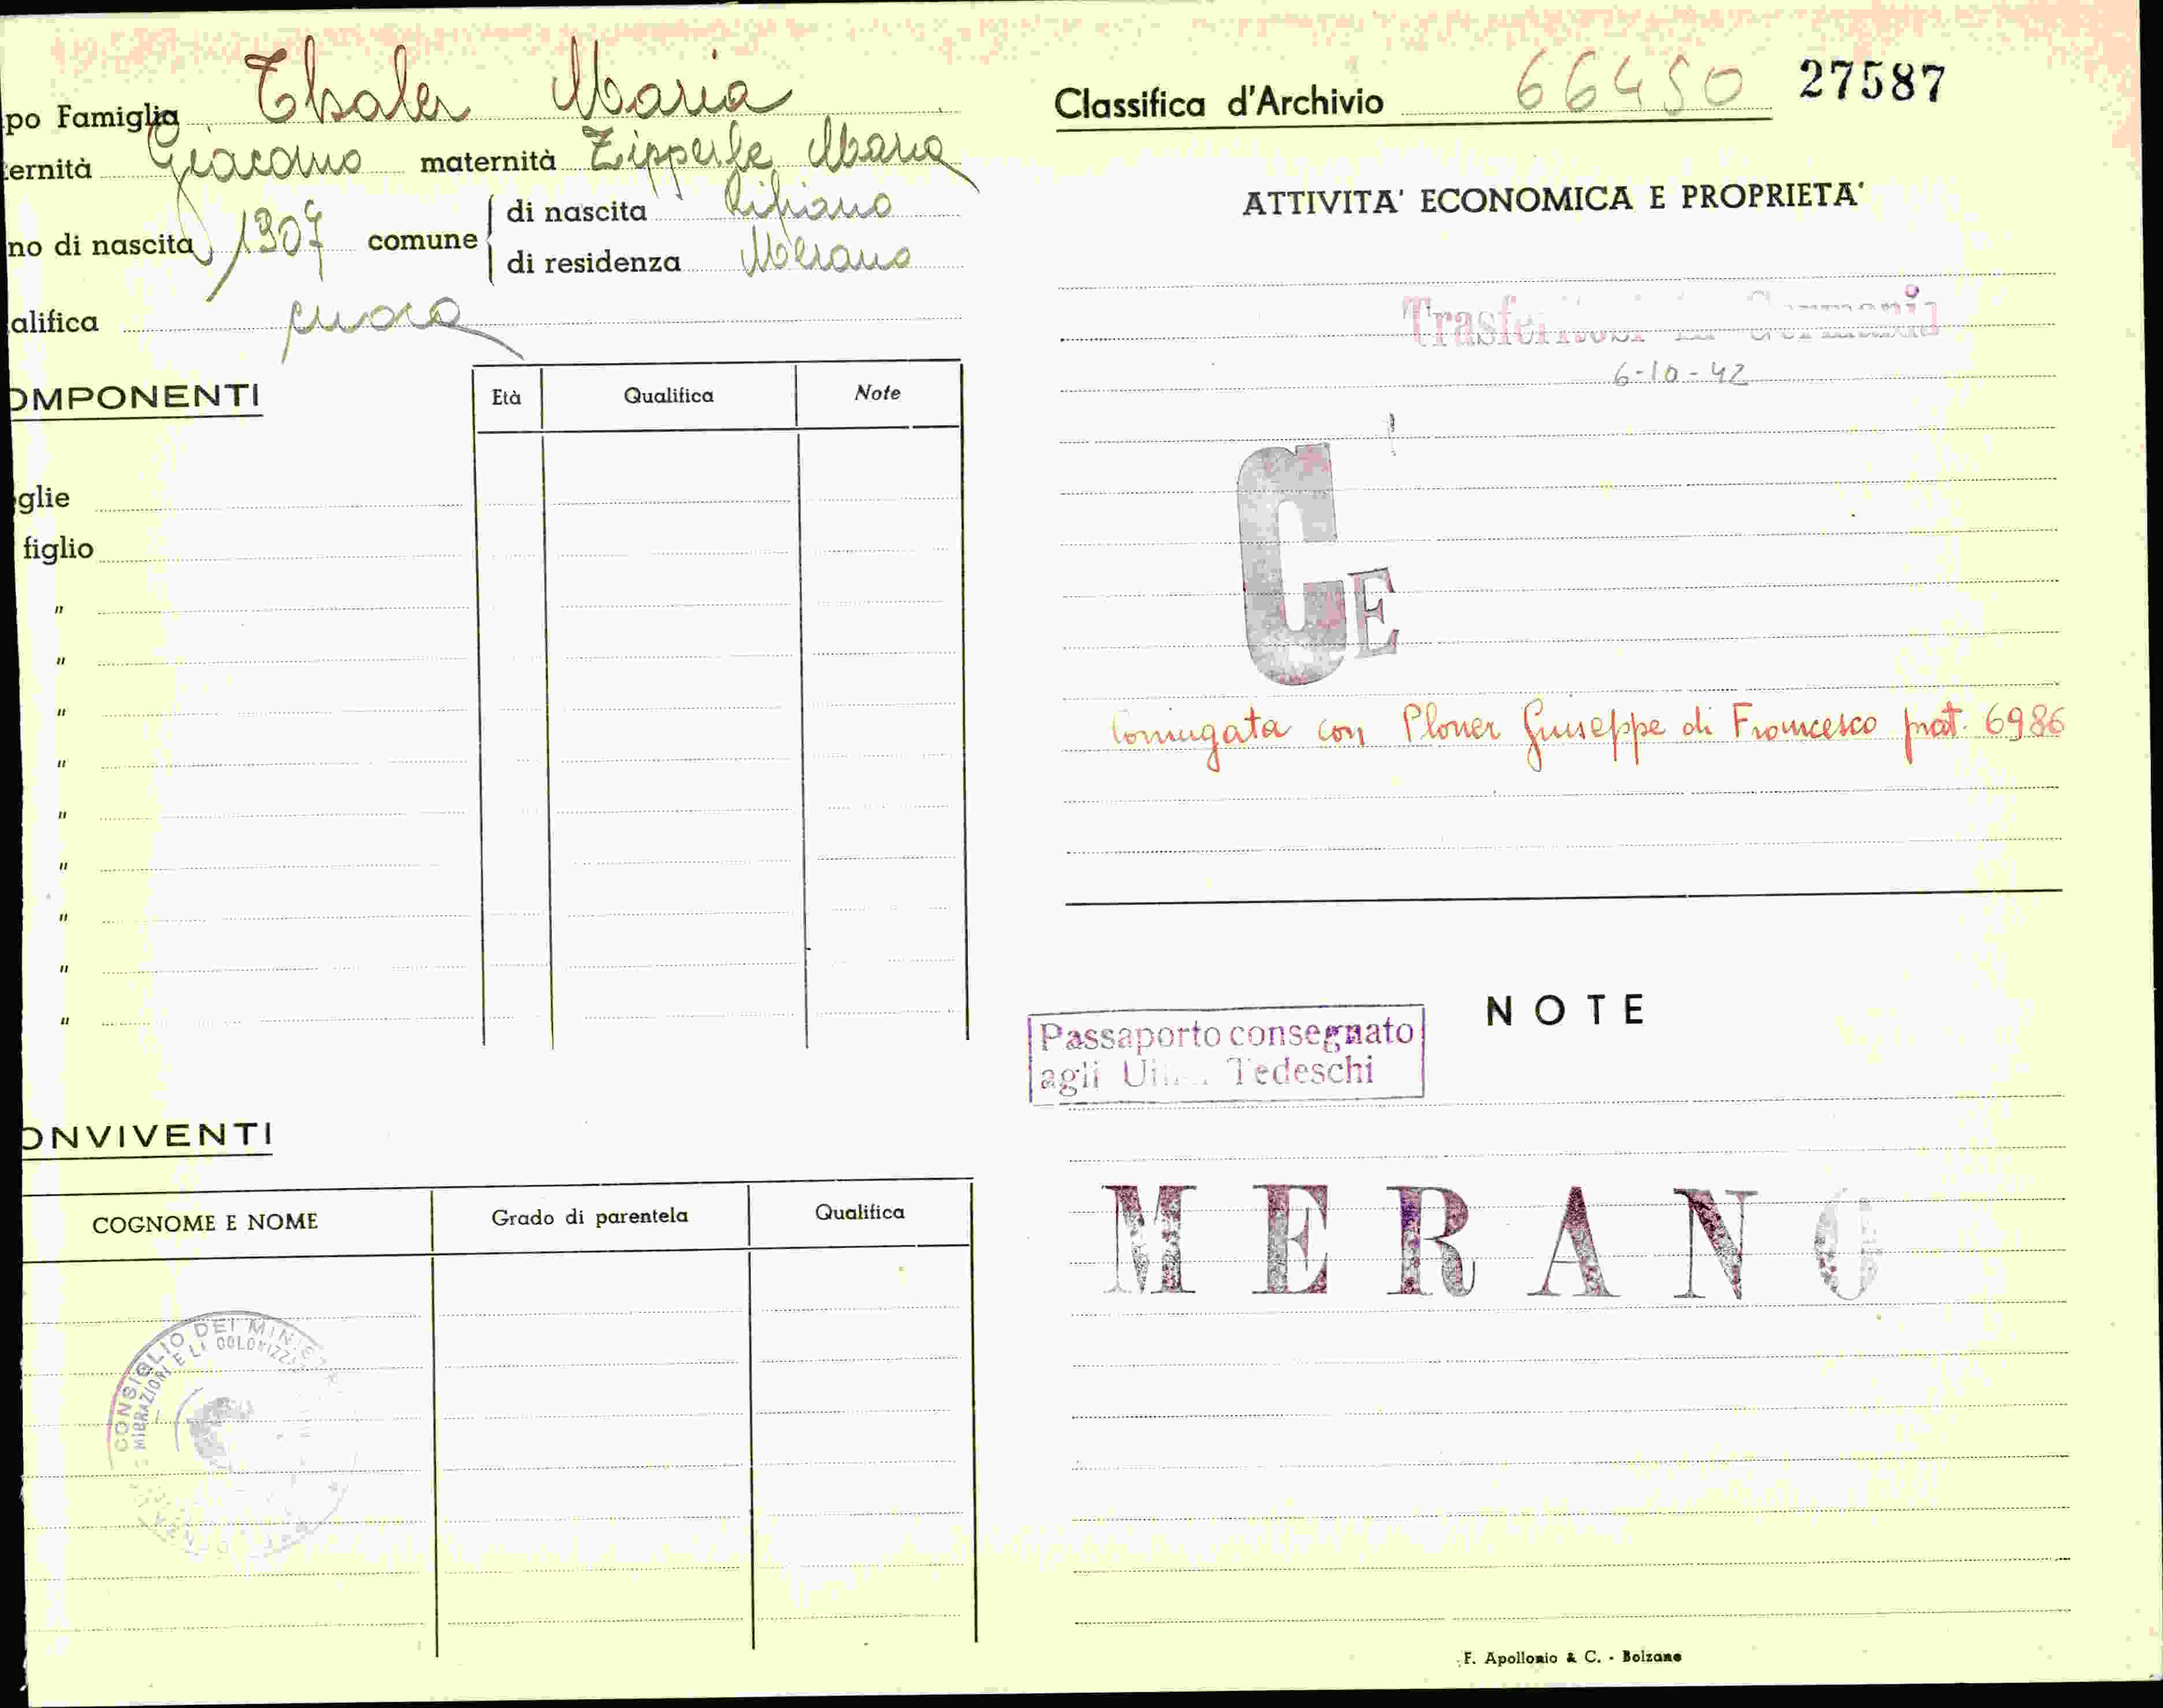 po Famiglia Thaler Maria
ernità Giacomo maternità Zipperle Maria
no di nascita 1907 comune di nascita Rifiano
di residenza Merano
alifica cuoca
OMPONENTI
Età Qualifica Note
glie
figlio
"
"
"
"
"
"
"
"
"
ONVIVENTI
COGNOME E NOME Grado di parentela Qualifica
CONSIGLIO DEI MINIS
MIGRAZIONI E LA COLONIZZA
Classifica d'Archivio 66450 27587
ATTIVITA' ECONOMICA E PROPRIETA'
Germania
6-10-42
CE
Coniugata con Ploner Giuseppe di Francesco prat. 6986
NOTE
Passaporto consegnato
agli Tedeschi
MERANO
F. Apollonio & C. - Bolzano